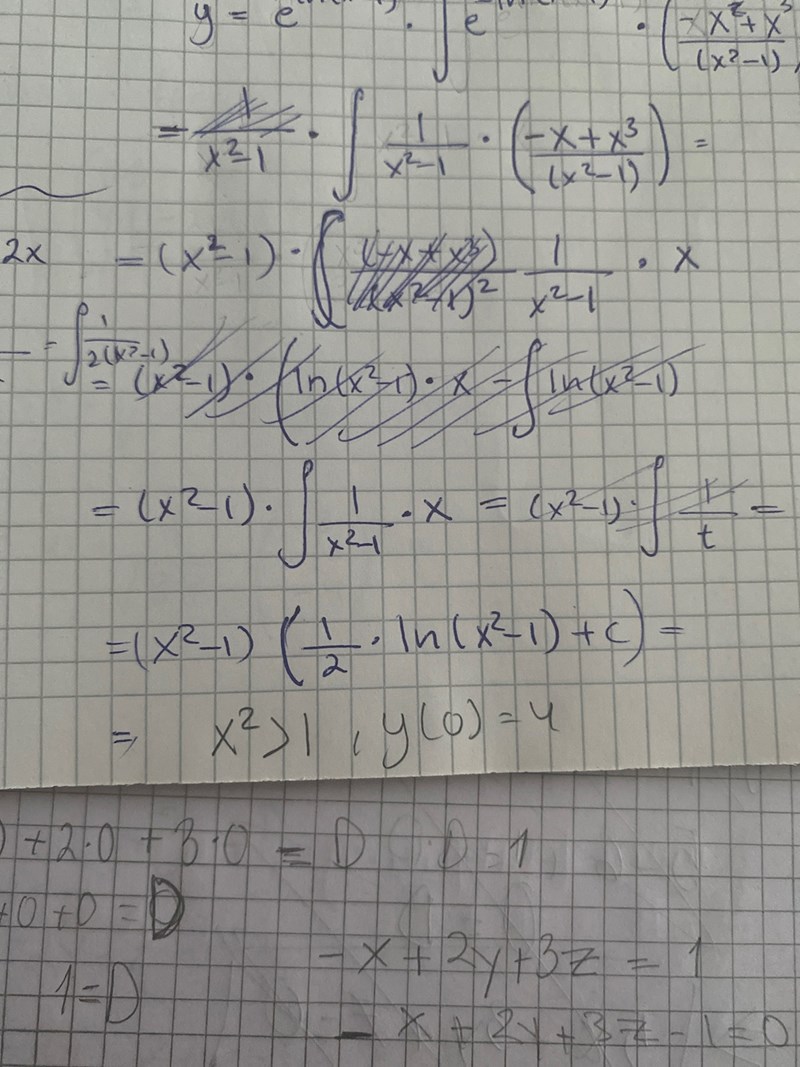 y = e · ∫ e · (-x² + x³ / (x²-1)
= / x²-1 · ∫ 1/x²-1 · (-x + x³ / (x²-1)) =
2x = (x²-1) · ∫ 1/x²-1 · x
= ∫ 1/2(x²-1)
= (x²-1) · (ln(x²-1) · x - ∫ ln(x²-1)
= (x²-1) · ∫ 1/x²-1 · x = (x²-1) · ∫ 1/t =
= (x²-1) (1/2 · ln(x²-1) + c) =
= x² > 1 , y(0) = 4
) + 2·0 + 3·0 = D D = 1
+0 +0 = D
- x + 2y + 3z = 1
1 = D
- x + 2y + 3z - 1 = 0